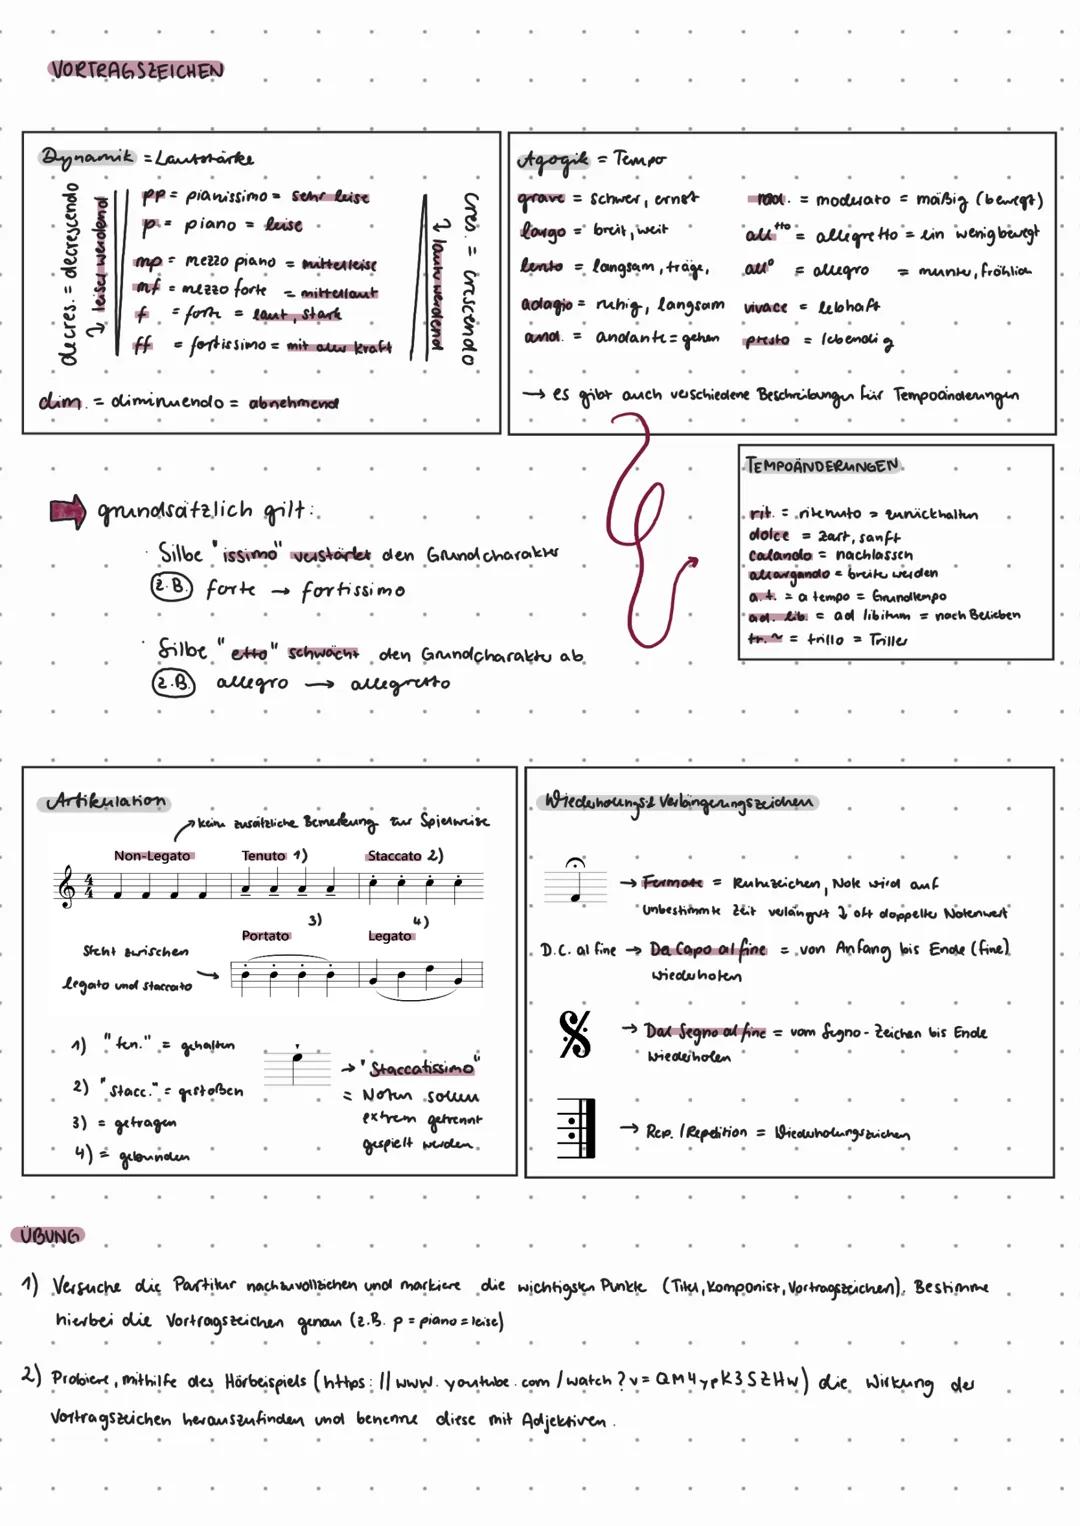 VORTRAGSZEICHEN
Dynamik = Lautstärke
decres. = decrescendo
↳ leiser werdend
pp = pianissimo = sehr leise
p = piano = leise
mp = mezzo piano = mittelleise
mf = mezzo forte = mittellaut
f = forte = laut, stark
ff = fortissimo = mit aller Kraft
cres. = crescendo
↳ lauter werdend
dim. = diminuendo = abnehmend
Agogik = Tempo
grave = schwer, ernst
largo = breit, weit
lento = langsam, träge,
adagio = ruhig, langsam
and. = andante = gehen
mod. = moderato = mäßig (bewegt)
all^tto = allegretto = ein wenig bewegt
all° = allegro = munter, fröhlich
vivace = lebhaft
presto = lebendig
→ es gibt auch verschiedene Beschreibungen für Tempoänderungen
TEMPOÄNDERUNGEN
rit. = ritenuto = zurückhalten
dolce = zart, sanft
calando = nachlassen
allargando = breiter werden
a.t. = a tempo = Grundtempo
ad. lib. = ad libitum = nach Belieben
tr. ~ = trillo = Triller
grundsätzlich gilt:
· Silbe "issimo" verstärkt den Grundcharakter
z.B. forte → fortissimo
· Silbe "etto" schwächt den Grundcharakter ab
z.B. allegro → allegretto
Artikulation
→ keine zusätzliche Bemerkung zur Spielweise
Non-Legato Tenuto 1) Staccato 2)
3) 4)
Portato Legato
Steht zwischen
legato und staccato
1) "ten." = gehalten
2) "stacc." = gestoßen
3) = getragen
4) = gebunden
→ "Staccatissimo"
= Noten sollen
extrem getrennt
gespielt werden.
Wiederholungs- & Verlängerungszeichen
→ Fermate = Ruhezeichen, Note wird auf
unbestimmte Zeit verlängert ↳ oft doppelter Notenwert
D.C. al fine → Da Capo al fine = von Anfang bis Ende (fine)
wiederholen
→ Dal Segno al fine = vom Segno-Zeichen bis Ende
wiederholen
→ Rep. / Repetition = Wiederholungszeichen
ÜBUNG
1) Versuche die Partitur nachzuvollziehen und markiere die wichtigsten Punkte (Titel, Komponist, Vortragszeichen). Bestimme
hierbei die Vortragszeichen genau (z.B. p = piano = leise)
2) Probiere, mithilfe des Hörbeispiels (https://www.youtube.com/watch?v=QM4ypK3SZHw) die Wirkung der
Vortragszeichen herauszufinden und benenne diese mit Adjektiven.